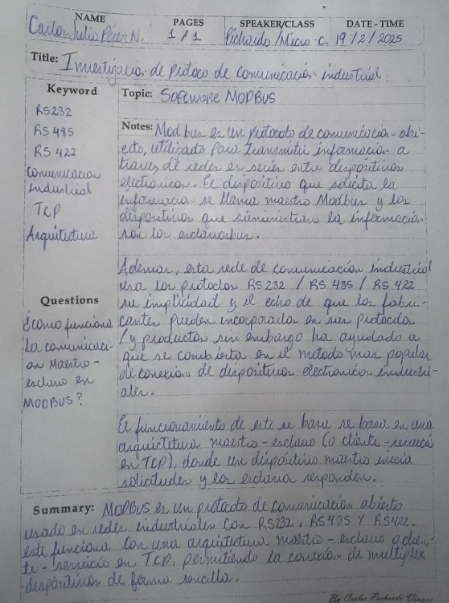 NAME
PAGES
SPEAKER/CLASS
DATE - TIME
Carlos Julio Pérez N.
1 / 1
Pichardo / Micro - C.
19 / 2 / 2025
Title: Investigacia de protoco de comunicacion industrial
Keyword
RS232
RS 485
RS 422
Comunicacion
Industrial
TCP
Arquitectura
Questions
¿como funciona
la comunicaci-
on Maestro -
esclavo en
MODBUS?
Topic: Software MODBUS
Notes: Modbus es un protocolo de comunicacion abi-
erto, utilizado para transmitir informacia a
traves de redes en series entre dispositivos
electronicos. El dispositivo que solicita la
informacia se llama maestro Modbus y los
dispositivos que suministran la informacia
son los esclavos
Ademas, esta rede de comunicacion industrial
usa los protoclos RS232 / RS 485 / RS 422
su implicidad y el echo de que los fabri-
cantes pueden incorporarlo en sus protocdos
/ y productos sin embargo ha ayudado a
que se combierta en el metodo mas popular
de conexion de dispositivos electronicos industri-
ales.
El funcionamiento de este se base se basa en una
arquictetura maestro - esclavo (o cliente - servicio
en TCP), donde un dispositivo maestro inicia
solicitudes y los esclavos responden.
Summary: MODBUS es un protocolo de comunicacion abierto
usado en redes industriales con RS232, RS485 Y RS422.
este funciona con una arquitectura maestro - esclavo o clien-
te - servicio en TCP, permitiendo la conexion de multiples
dispositivos de forma sencilla.
By Carlos Pichardo Vargas